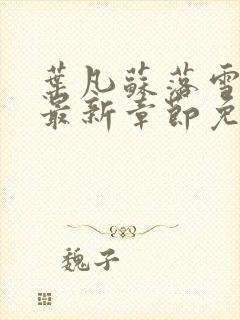 葉凡蘇落雪
最新章節免
魏子